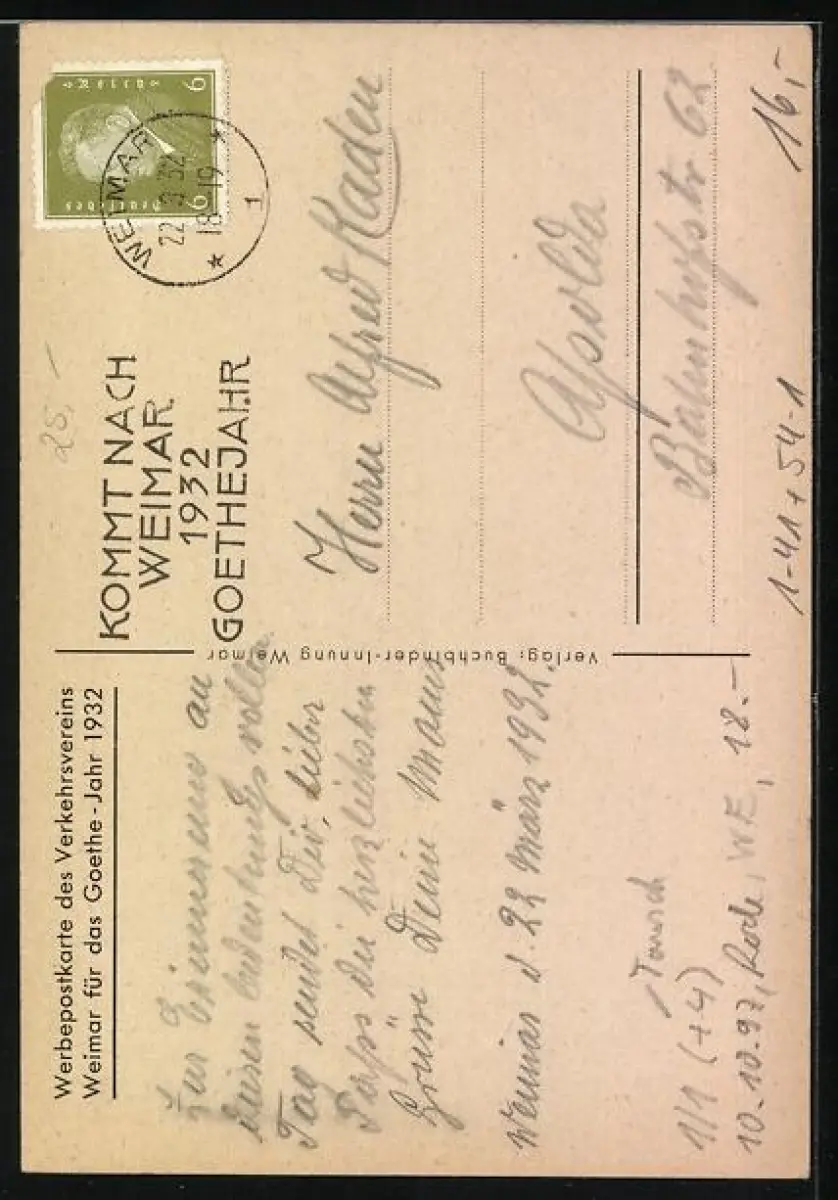 Werbepostkarte des Verkehrsvereins
Weimar für das Goethe-Jahr 1932
Zur Erinnerung an
diesen bedeutungsvollen
Tag sendet Dir, lieber
die herzlichsten
Grüsse Deine Mama
Weimar d. 22 März 1932.
Tausch
1/1 (+4)
10.10.97, Rode, WE, 18.-
Verlag: Buchbinder-Innung Weimar
25,-
KOMMT NACH
WEIMAR
1932
GOETHEJAHR
6 6
Deutsches Reich
WEIMAR
22.3.32
18-19
* 1 *
Herrn Alfred Kaden
Apolda
Bahnhofstr 62
16,-
1-41+54-1